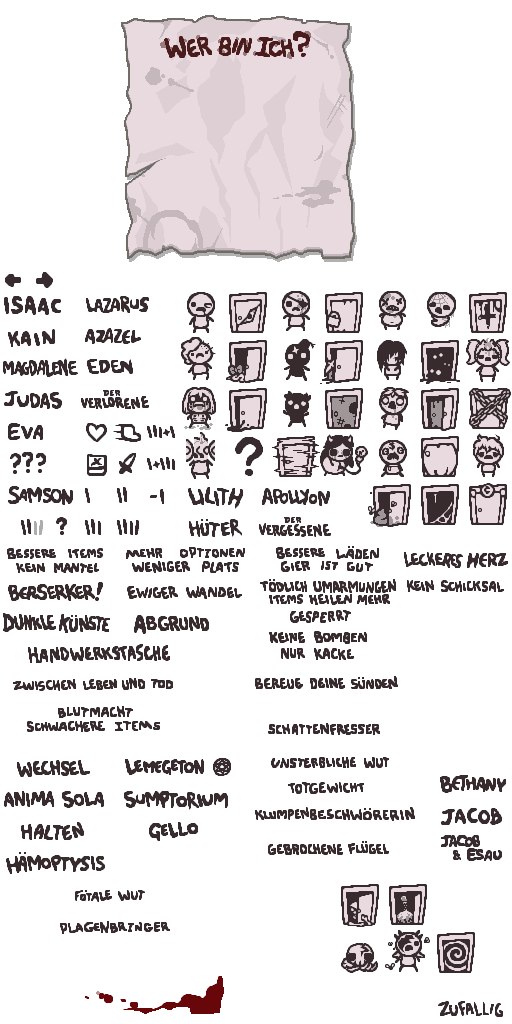 WER BIN ICH?
ISAAC LAZARUS
KAIN AZAZEL
MAGDALENE EDEN
JUDAS DER VERLORENE
EVA
???
?
SAMSON LILITH APOLLYON
? HÜTER DER VERGESSENE
BESSERE ITEMS
KEIN MANTEL
MEHR OPTIONEN
WENIGER PLATS
BESSERE LÄDEN
GIER IST GUT
LECKERES HERZ
BERSERKER!
EWIGER WANDEL
TÖDLICH UMARMUNGEN
ITEMS HEILEN MEHR
KEIN SCHICKSAL
DUNKLE KÜNSTE
ABGRUND
GESPERRT
KEINE BOMBEN
NUR KACKE
HANDWERKSTASCHE
ZWISCHEN LEBEN UND TOD
BEREUE DEINE SÜNDEN
BLUTMACHT
SCHWACHERE ITEMS
SCHATTENFRESSER
WECHSEL
LEMEGETON
UNSTERBLICHE WUT
TOTGEWICHT
BETHANY
ANIMA SOLA
SUMPTORIUM
KLUMPENBESCHWÖRERIN
JACOB
HALTEN
GELLO
GEBROCHENE FLÜGEL
JACOB
& ESAU
HÄMOPTYSIS
FÖTALE WUT
PLAGENBRINGER
ZUFÄLLIG